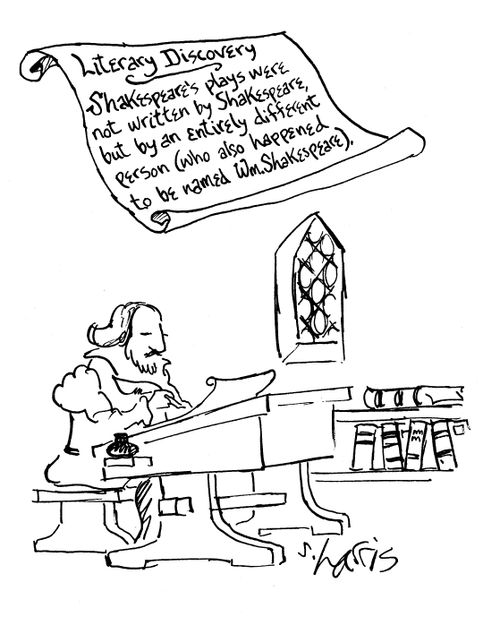 Literary Discovery
Shakespeare's plays were
not written by Shakespeare,
but by an entirely different
person (who also happened
to be named Wm. Shakespeare).
S. Harris